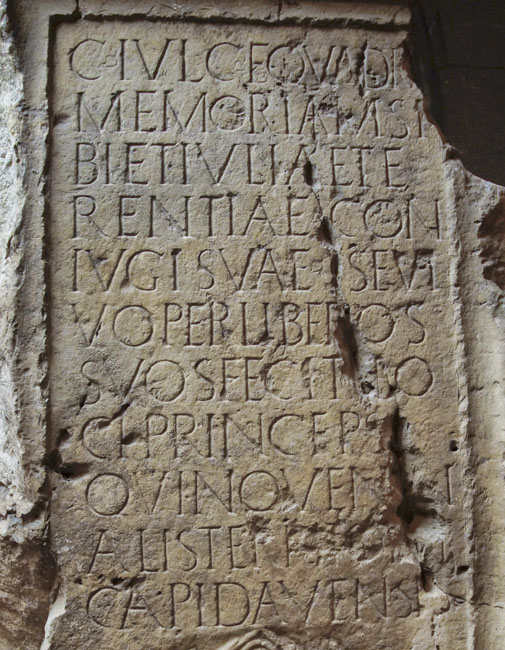 C·IVL·C·F·QVADR
MEMORIAM SI
BI ET IVLIAE TE
RENTIAE CON
IVGI SVAE SE VI
VO PER LIBEROS
SVOS FECIT LO
CI PRINCEPS
QVINQVENN
ALIS TERR
CAPIDAVENSI